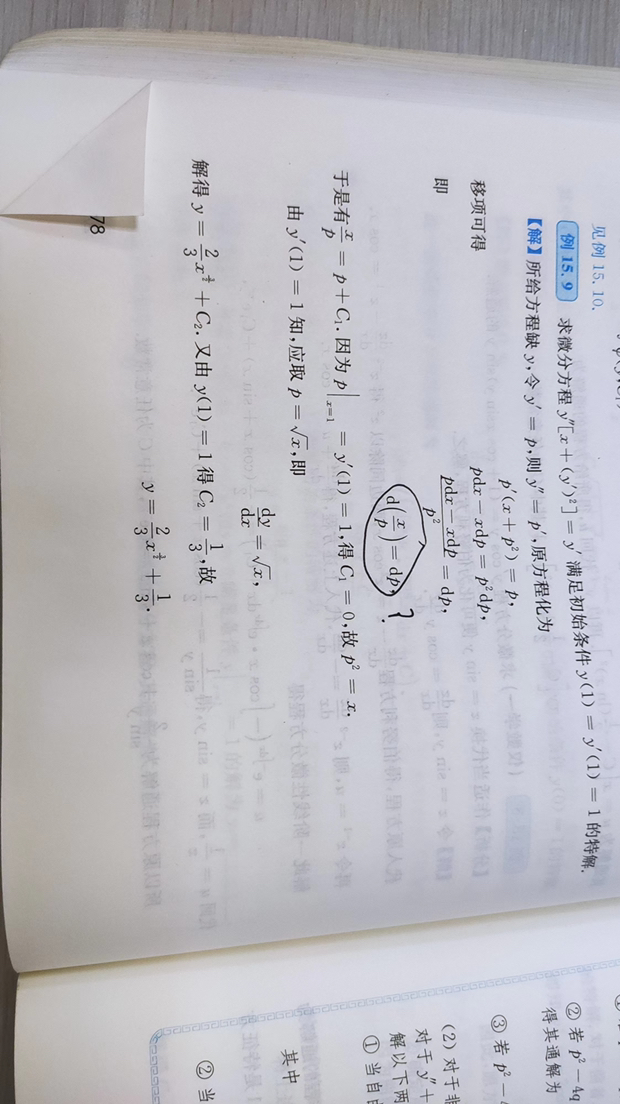 见例 15.10.
例 15.9 求微分方程 y″[x + (y′)²] = y′ 满足初始条件 y(1) = y′(1) = 1 的特解.
【解】所给方程缺 y, 令 y′ = p, 则 y″ = p′, 原方程化为
p′(x + p²) = p,
移项可得 pdx − xdp = p²dp,
即 \frac{pdx − xdp}{p²} = dp,
d(\frac{x}{p}) = dp, ?
于是有 \frac{x}{p} = p + C₁. 因为 p|ₓ₌₁ = y′(1) = 1, 得 C₁ = 0, 故 p² = x.
由 y′(1) = 1 知, 应取 p = √x, 即
\frac{dy}{dx} = √x,
解得 y = \frac{2}{3}x^{\frac{3}{2}} + C₂. 又由 y(1) = 1 得 C₂ = \frac{1}{3}, 故
y = \frac{2}{3}x^{\frac{3}{2}} + \frac{1}{3}.
78
② 若 p² − 4q
得其通解为
③ 若 p² −
(2) 对于非
对于 y″ +
解以下两
① 当自由
其中
② 当